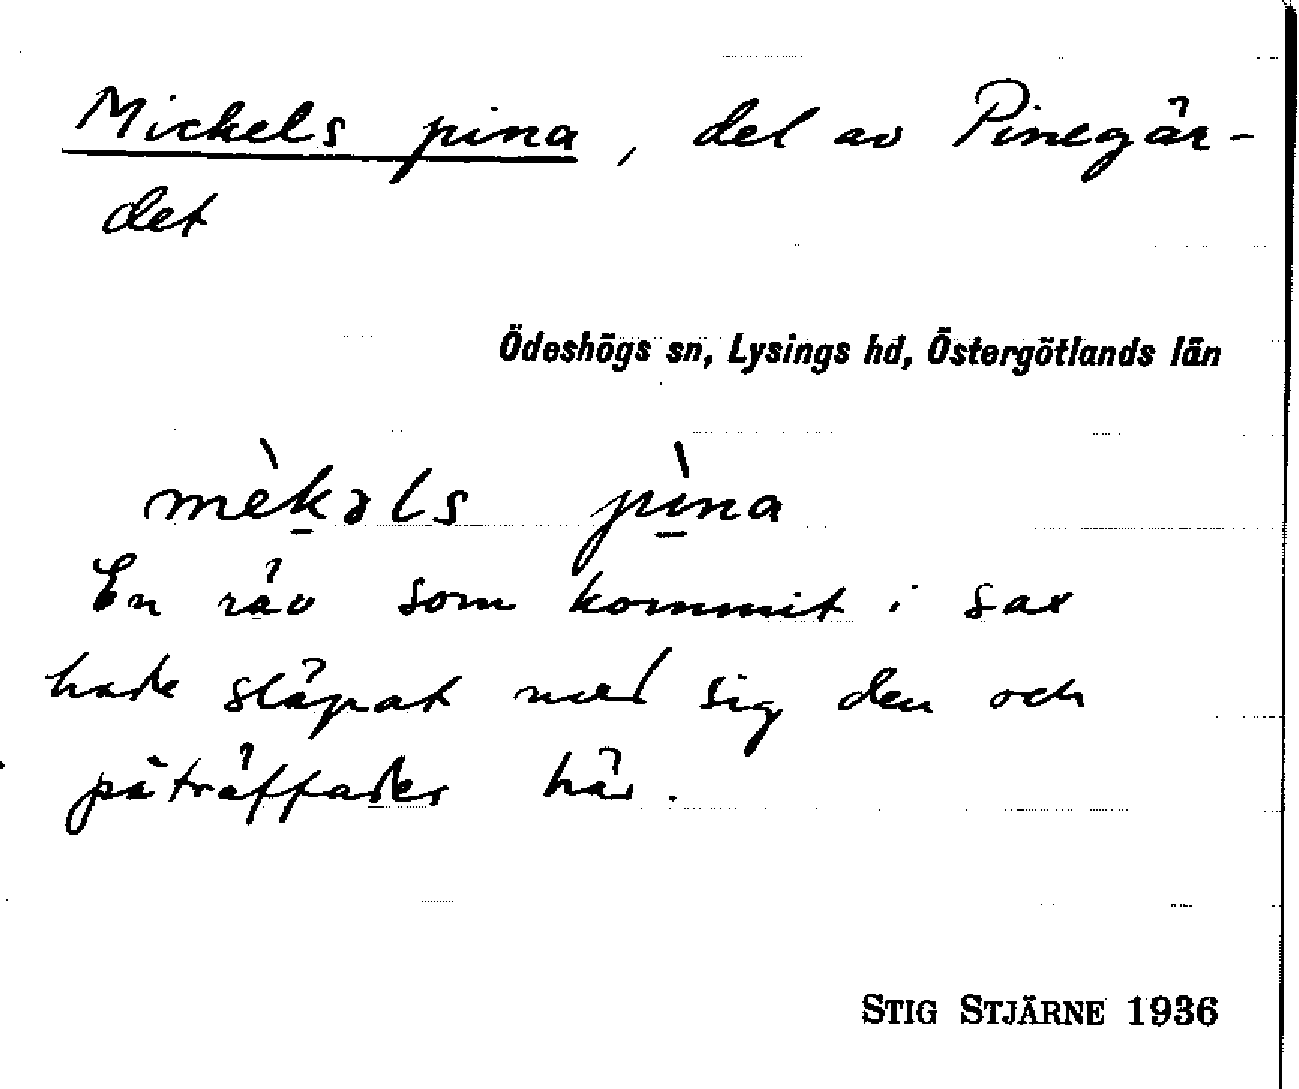 Mickels pina, del av Pinegär-
det
Ödeshögs sn, Lysings hd, Östergötlands län
mèk̠əls pì̠na
En räv som kommit i sax
hade släpat med sig den och
påträffades här.
STIG STJÄRNE 1936